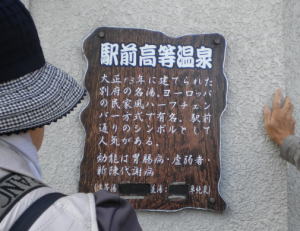 駅前高等温泉
大正13年に建てられた
別府の名湯。ヨーロッパ
の民家風ハーフチェン
バー方式で有名。駅前
通りのシンボルとして
人気がある。
効能は胃腸病・虚弱者・
新陳代謝病
単純泉)
AN